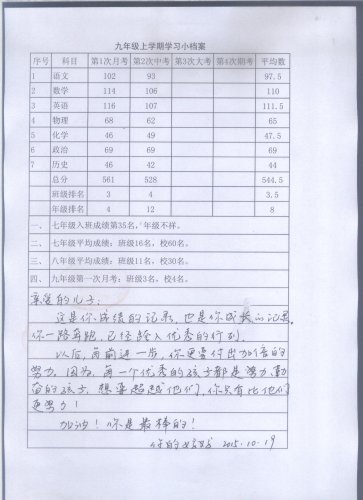 九年级上学期学习小档案
序号 科目 第1次月考 第2次中考 第3次大考 第4次期考 平均数
1 语文 102 93 97.5
2 数学 114 106 110
3 英语 116 107 111.5
4 物理 68 62 65
5 化学 46 49 47.5
6 政治 69 69 69
7 历史 46 42 44
总分 561 528 544.5
班级排名 3 4 3.5
年级排名 4 12 8
一、 七年级入班成绩第35名,年级不祥。
二、 七年级平均成绩:班级16名,校60名。
三、 八年级平均成绩:班级11名,校30名。
四、 九年级第一次月考:班级3名,校4名。
亲爱的儿子:
这是你成绩的记录,也是你成长的记录,
你一路奔跑,已经跨入优秀的行列。
以后,每前进一步,你更要付出加倍的
努力,因为,每一个优秀的孩子都是努力、勤
奋的孩子,想要超越他们,你只有比他们
更努力!
加油!你是最棒的!
你的 2015.10.19